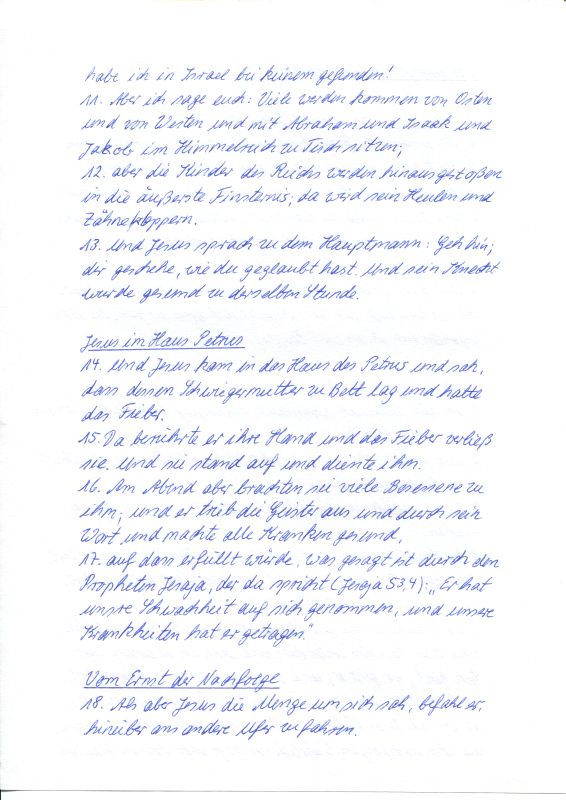 habe ich in Israel bei keinem gefunden!
11. Aber ich sage euch: Viele werden kommen von Osten
und von Westen und mit Abraham und Isaak und
Jakob im Himmelreich zu Tisch sitzen;
12. aber die Kinder des Reichs werden hinausgestoßen
in die äußerste Finsternis; da wird sein Heulen und
Zähneklappern.
13. Und Jesus sprach zu dem Hauptmann: Geh hin;
dir geschehe, wie du geglaubt hast. Und sein Knecht
wurde gesund zu derselben Stunde.
Jesus im Haus Petrus
14. Und Jesus kam in das Haus des Petrus und sah,
dass dessen Schwiegermutter zu Bett lag und hatte
das Fieber.
15. Da berührte er ihre Hand und das Fieber verließ
sie. Und sie stand auf und diente ihm.
16. Am Abend aber brachten sie viele Besessene zu
ihm; und er trieb die Geister aus und durch sein
Wort und machte alle Kranken gesund,
17. auf dass erfüllt würde, was gesagt ist durch den
Propheten Jesaja, der da spricht (Jesaja 53,4): „Er hat
unsre Schwachheit auf sich genommen, und unsere
Krankheiten hat er getragen."
Vom Ernst der Nachfolge
18. Als aber Jesus die Menge um sich sah, befahl er,
hinüber ans andere Ufer zu fahren.